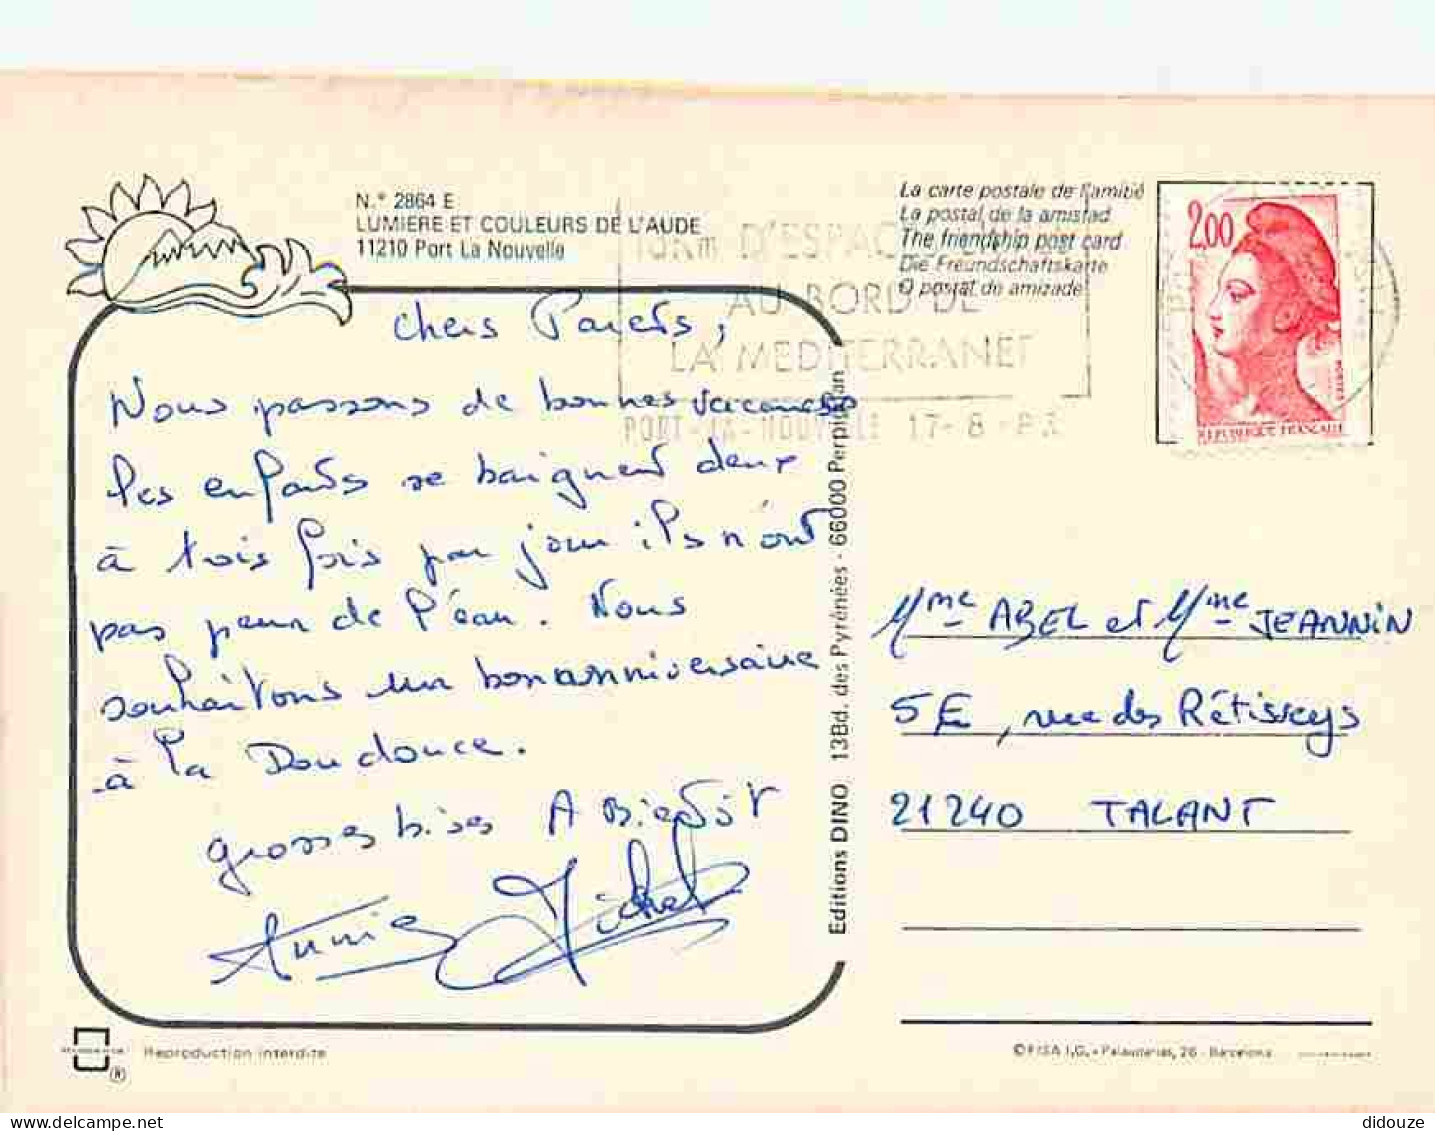 N.° 2864 E
LUMIERE ET COULEURS DE L'AUDE
11210 Port La Nouvelle
La carte postale de l'amitié
La postal de la amistad
The friendship post card
Die Freundschaftskarte
O postal de amizade
10 Km D'ESPACE
AU BORD DE
LA MEDITERRANEE
PORT-LA-NOUVELLE 17-8-
2,00
REPUBLIQUE FRANÇAISE
Chers Parents,
Nous passons de bonnes vacances
les enfants se baignent deux
à trois fois par jour ils n'ont
pas peur de l'eau. Nous
souhaitons un bon anniversaire
à la Doudouce.
grosses bises A Bientôt
Annie Michel
Editions DINO, 13Bd. des Pyrénées - 66000 Perpignan
Mme ABEL et Mme JEANNIN
5E, rue des Rétisseys
21240 TALANT
Reproduction interdite
®
© FISA I.G. - Palaudarias, 26 - Barcelona
didouze